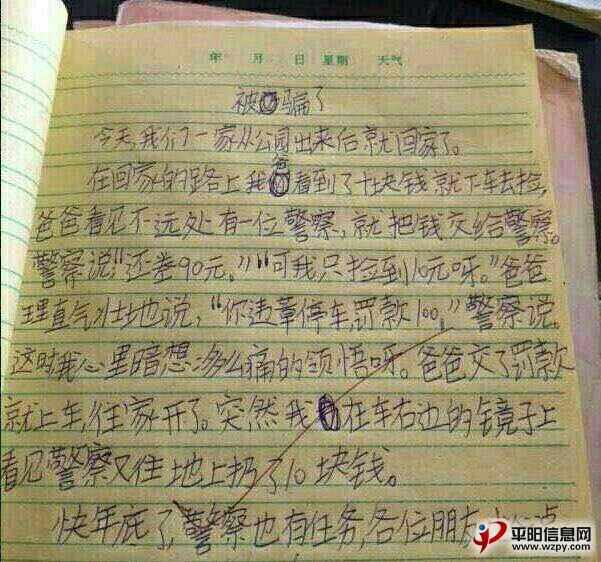 年 月 日 星期 天气
被骗了
今天,我们一家从公园出来后就回家了。
在回家的路上我爸看到了十块钱就下车去捡,
爸爸看见不远处有一位警察,就把钱交给警察。
警察说“还差90元。”“可我只捡到10元呀。”爸爸
理直气壮地说,“你违章停车,罚款100,”警察说。
这时我心里暗想:多么痛的领悟呀。爸爸交了罚款
就上车,往家开了。突然我在车右边的镜子上
看见警察又往地上扔了10块钱。
快年底了,警察也有任务,各位朋友小心点
平阳信息网
www.wzpy.com